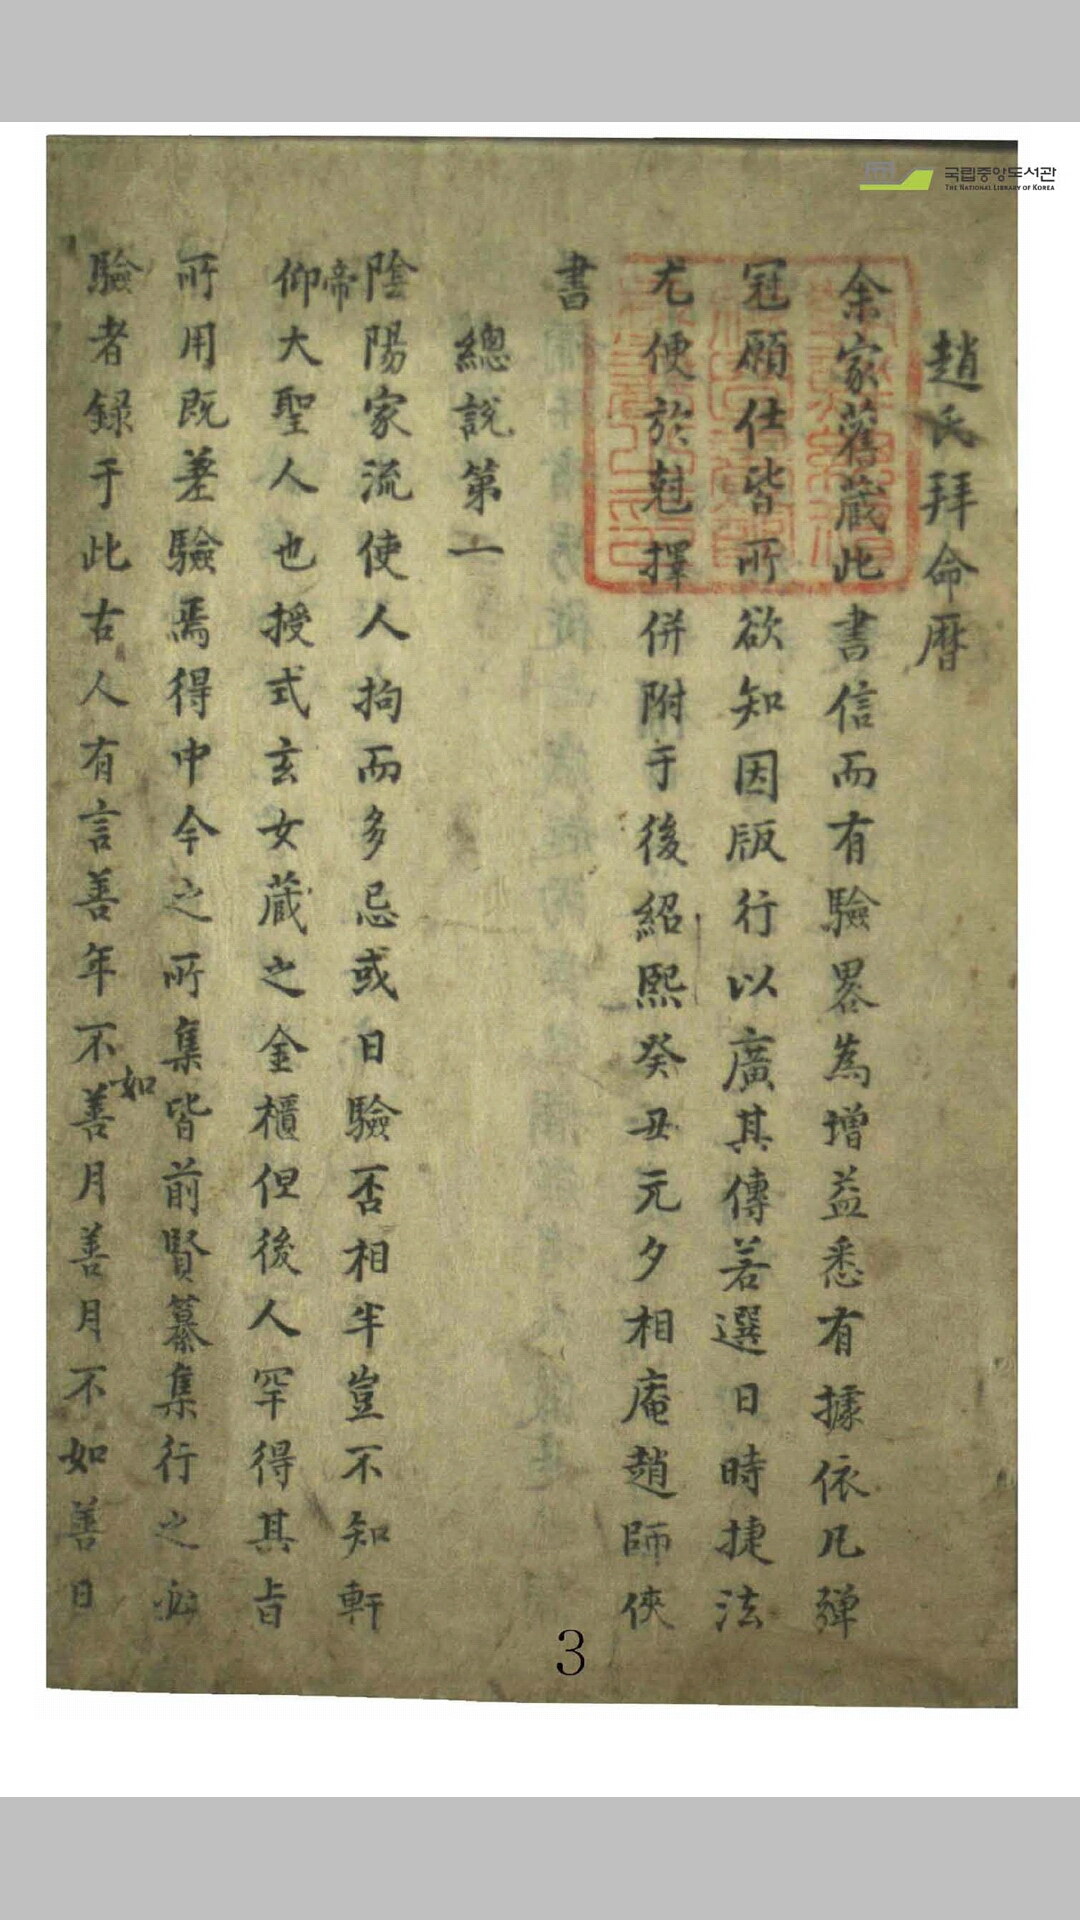 국립중앙도서관
THE NATIONAL LIBRARY OF KOREA
趙氏拜命曆
余家舊藏此書信而有驗畧為增益悉有據依凡彈
冠願仕皆所欲知因版行以廣其傳若選日時捷法
尤便於尅擇併附于後紹熙癸丑元夕相庵趙師俠
書
總說第一
陰陽家流使人拘而多忌或日驗否相半豈不知軒
帝
仰大聖人也授式玄女藏之金櫃但後人罕得其旨
所用既差驗焉得中今之所集皆前賢纂集行之必
驗者録于此古人有言善年不善月善月不如善日
如
3